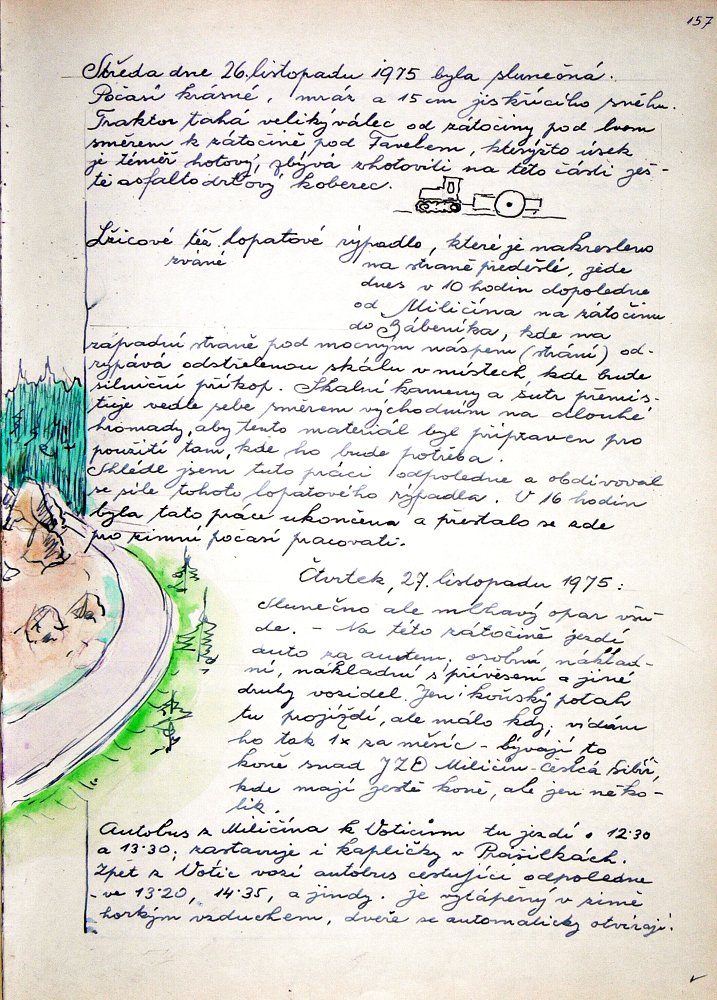 157
Středa dne 26. listopadu 1975 byla slunečná.
Počasí krásné, mráz a 15 cm jiskřícího sněhu.
Traktor tahá veliký válec od zátočiny pod lvem
směrem k zátočině pod Favelem, kterýžto úsek
je téměř hotový, zbývá zhotoviti na této části ješ-
tě asfaltodrťový koberec.
Lžícové též lopatové rýpadlo, které je nakresleno
zvané na straně předešlé, jede
dnes v 10 hodin dopoledne
od Miličína na zátočinu
do Záběníka, kde na
západní straně pod mocným náspem (strání) od-
rypává odstřelenou skálu v místech, kde bude
silniční příkop. Skalní kameny a šutr přemís-
tuje vedle sebe směrem východním na dlouhé
hromady, aby tento materiál byl připraven pro
použití tam, kde ho bude potřeba.
Shlédl jsem tuto práci odpoledne a obdivoval
se síle tohoto lopatového rýpadla. V 16 hodin
byla tato práce ukončena a přestalo se zde
pro zimní počasí pracovati.
Čtvrtek, 27. listopadu 1975:
Slunečno ale mlhavý opar všu-
de. - Na této zátočině jezdí
auto za autem, osobní, náklad-
ní, nákladní s přívěsem a jiné
druhy vozidel. Jen koňský potah
tu projíždí, ale málo kdy, vídám
ho tak 1x za měsíc - bývají to
koně snad JZD Miličín - Sibiř,
kde mají ještě koně, ale jen něko-
lik.
Autobus z Miličína k Voticům tu jezdí o 12·30
a 13·30; zastavuje i kapličky v Prašilkách.
Zpět z Votic vozí autobus cestující odpoledne
- ve 13·20, 14·35, a jindy. Je vytápěný v zimě
horkým vzduchem, dveře se automaticky otvírají.